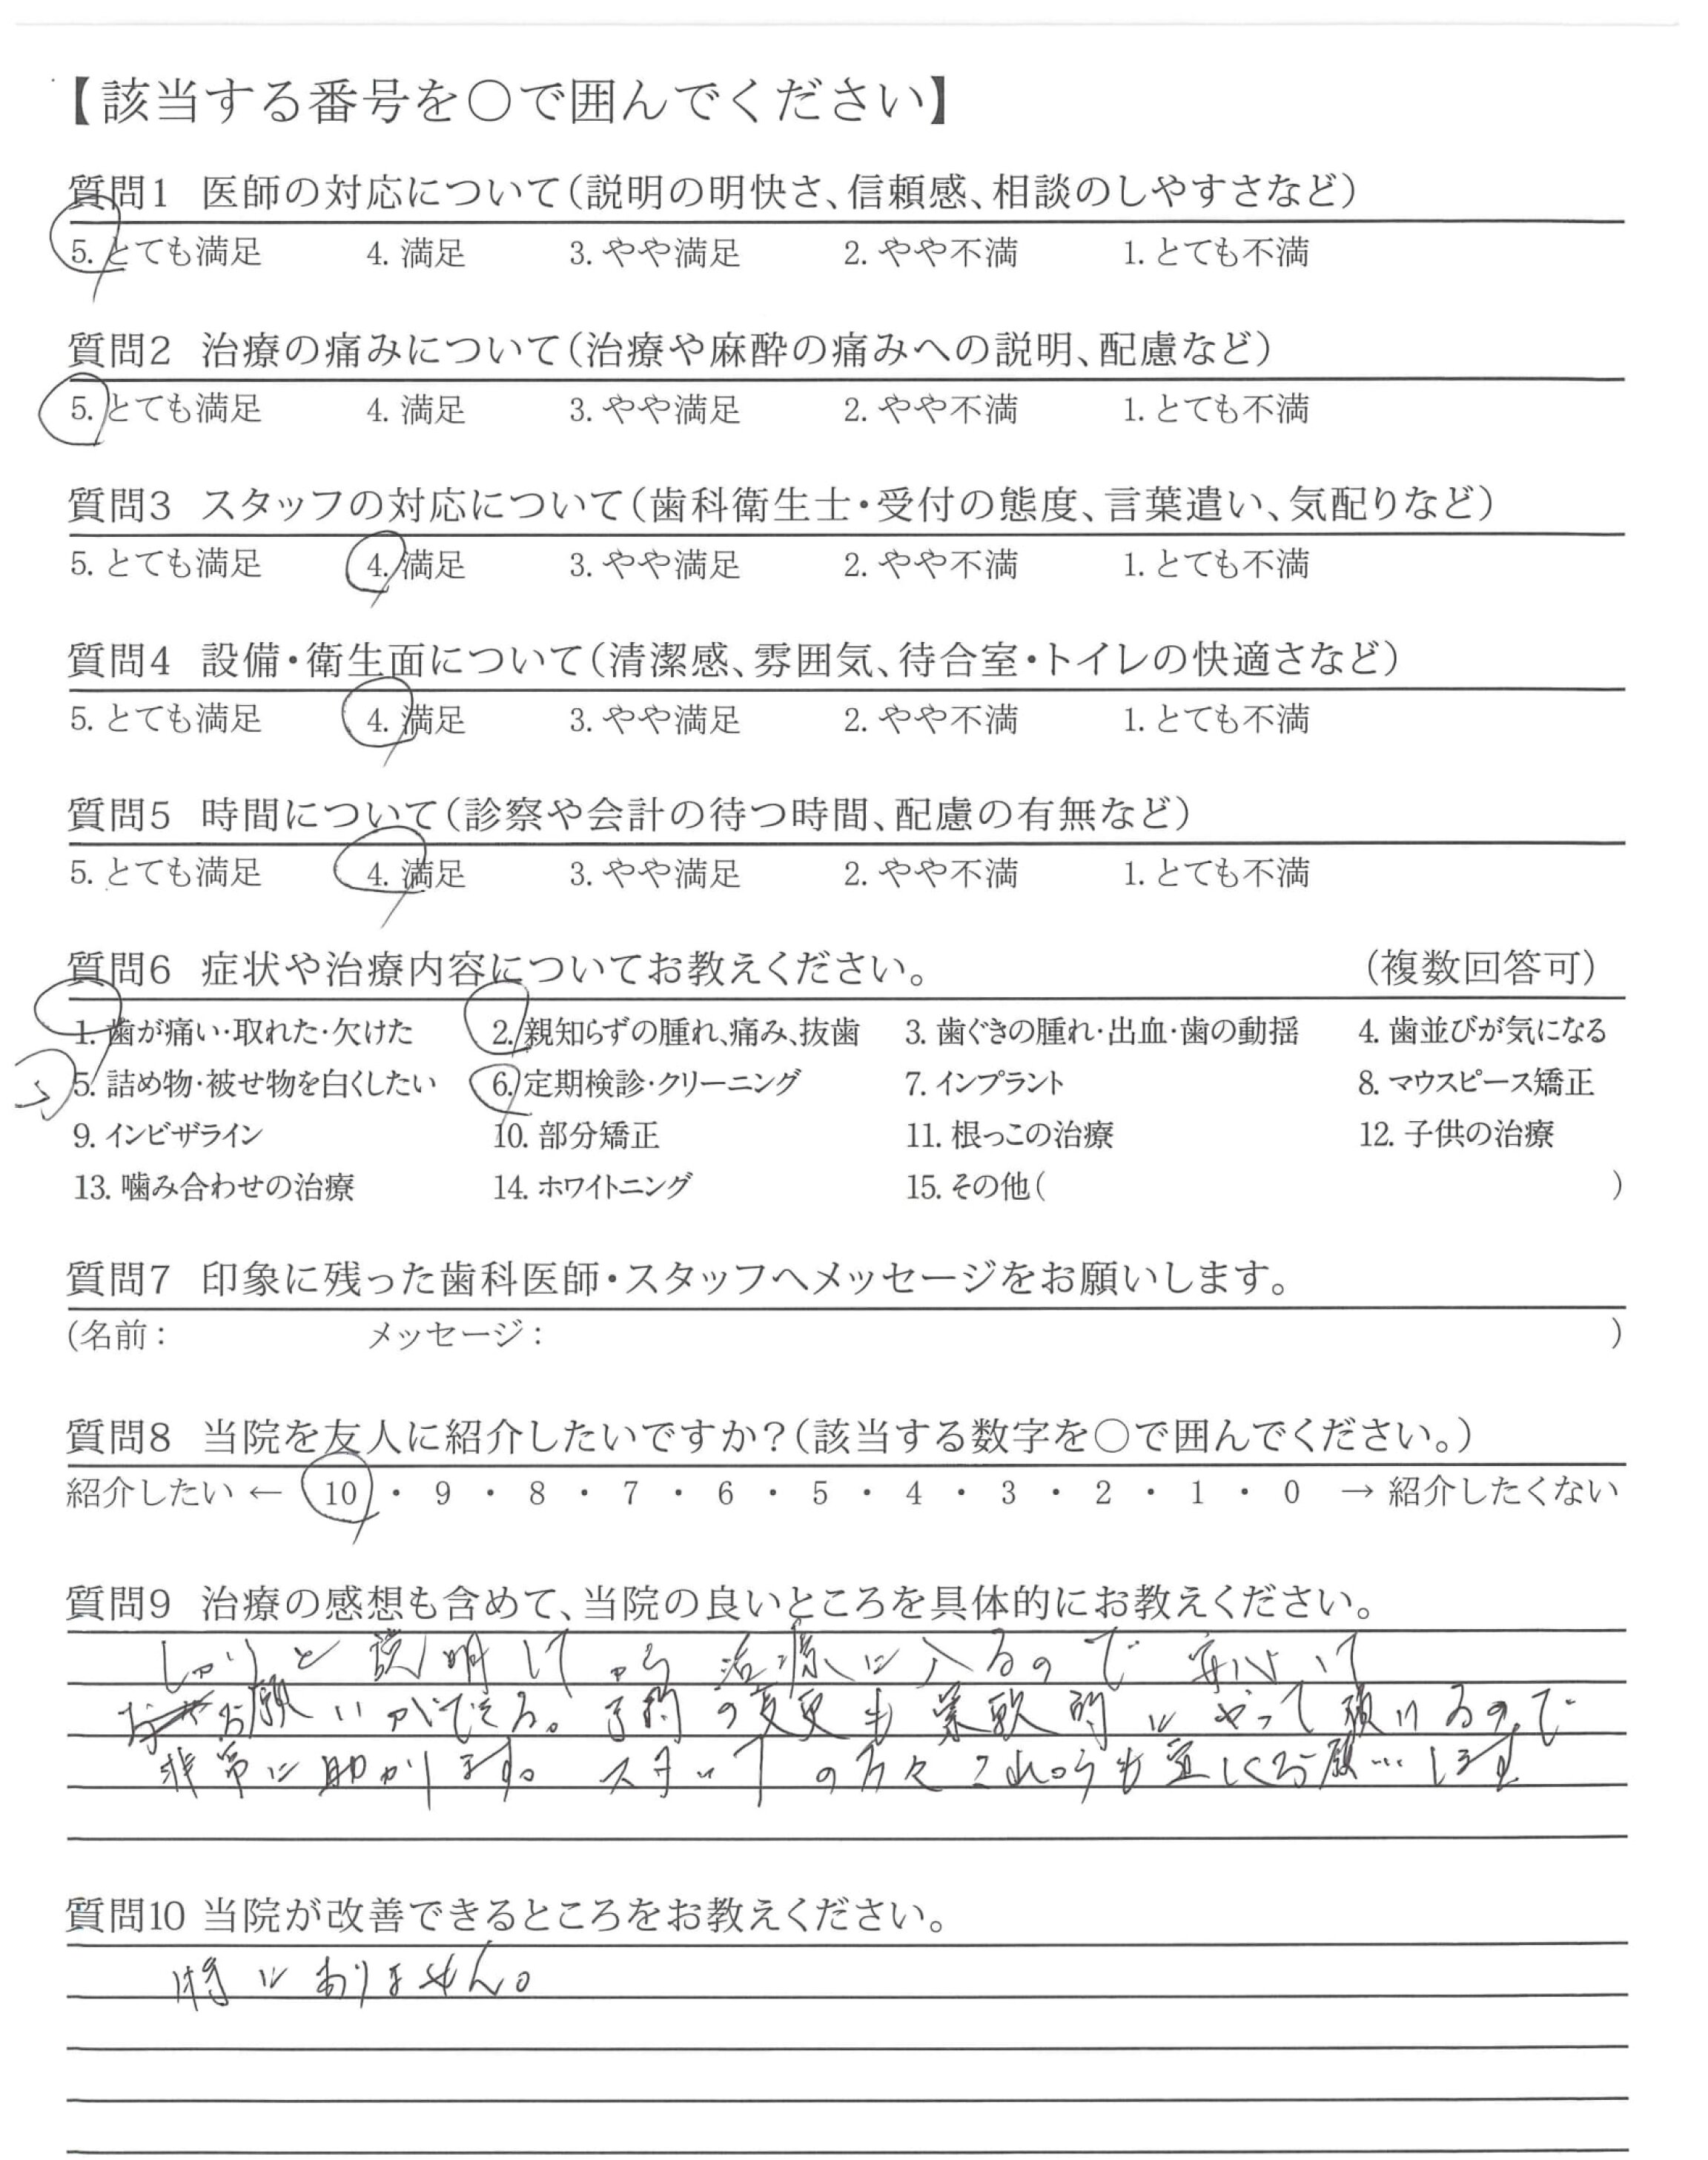 【該当する番号を○で囲んでください】
質問1 医師の対応について(説明の明快さ、信頼感、相談のしやすさなど)
5. とても満足 4. 満足 3. やや満足 2. やや不満 1. とても不満
質問2 治療の痛みについて(治療や麻酔の痛みへの説明、配慮など)
5. とても満足 4. 満足 3. やや満足 2. やや不満 1. とても不満
質問3 スタッフの対応について(歯科衛生士・受付の態度、言葉遣い、気配りなど)
5. とても満足 4. 満足 3. やや満足 2. やや不満 1. とても不満
質問4 設備・衛生面について(清潔感、雰囲気、待合室・トイレの快適さなど)
5. とても満足 4. 満足 3. やや満足 2. やや不満 1. とても不満
質問5 時間について(診察や会計の待つ時間、配慮の有無など)
5. とても満足 4. 満足 3. やや満足 2. やや不満 1. とても不満
質問6 症状や治療内容についてお教えください。 (複数回答可)
1. 歯が痛い・取れた・欠けた 2. 親知らずの腫れ、痛み、抜歯 3. 歯ぐきの腫れ・出血・歯の動揺 4. 歯並びが気になる
5. 詰め物・被せ物を白くしたい 6. 定期検診・クリーニング 7. インプラント 8. マウスピース矯正
9. インビザライン 10. 部分矯正 11. 根っこの治療 12. 子供の治療
13. 噛み合わせの治療 14. ホワイトニング 15. その他( )
質問7 印象に残った歯科医師・スタッフへメッセージをお願いします。
(名前: メッセージ: )
質問8 当院を友人に紹介したいですか?(該当する数字を○で囲んでください。)
紹介したい ← 10 ・ 9 ・ 8 ・ 7 ・ 6 ・ 5 ・ 4 ・ 3 ・ 2 ・ 1 ・ 0 → 紹介したくない
質問9 治療の感想も含めて、当院の良いところを具体的にお教えください。
しっかりと説明してから治療に入るので安心して
お願いができる。予約の変更も柔軟的にやって頂けるので
非常に助かります。スタッフの方々これからも宜しくお願いします
質問10 当院が改善できるところをお教えください。
特にありません。